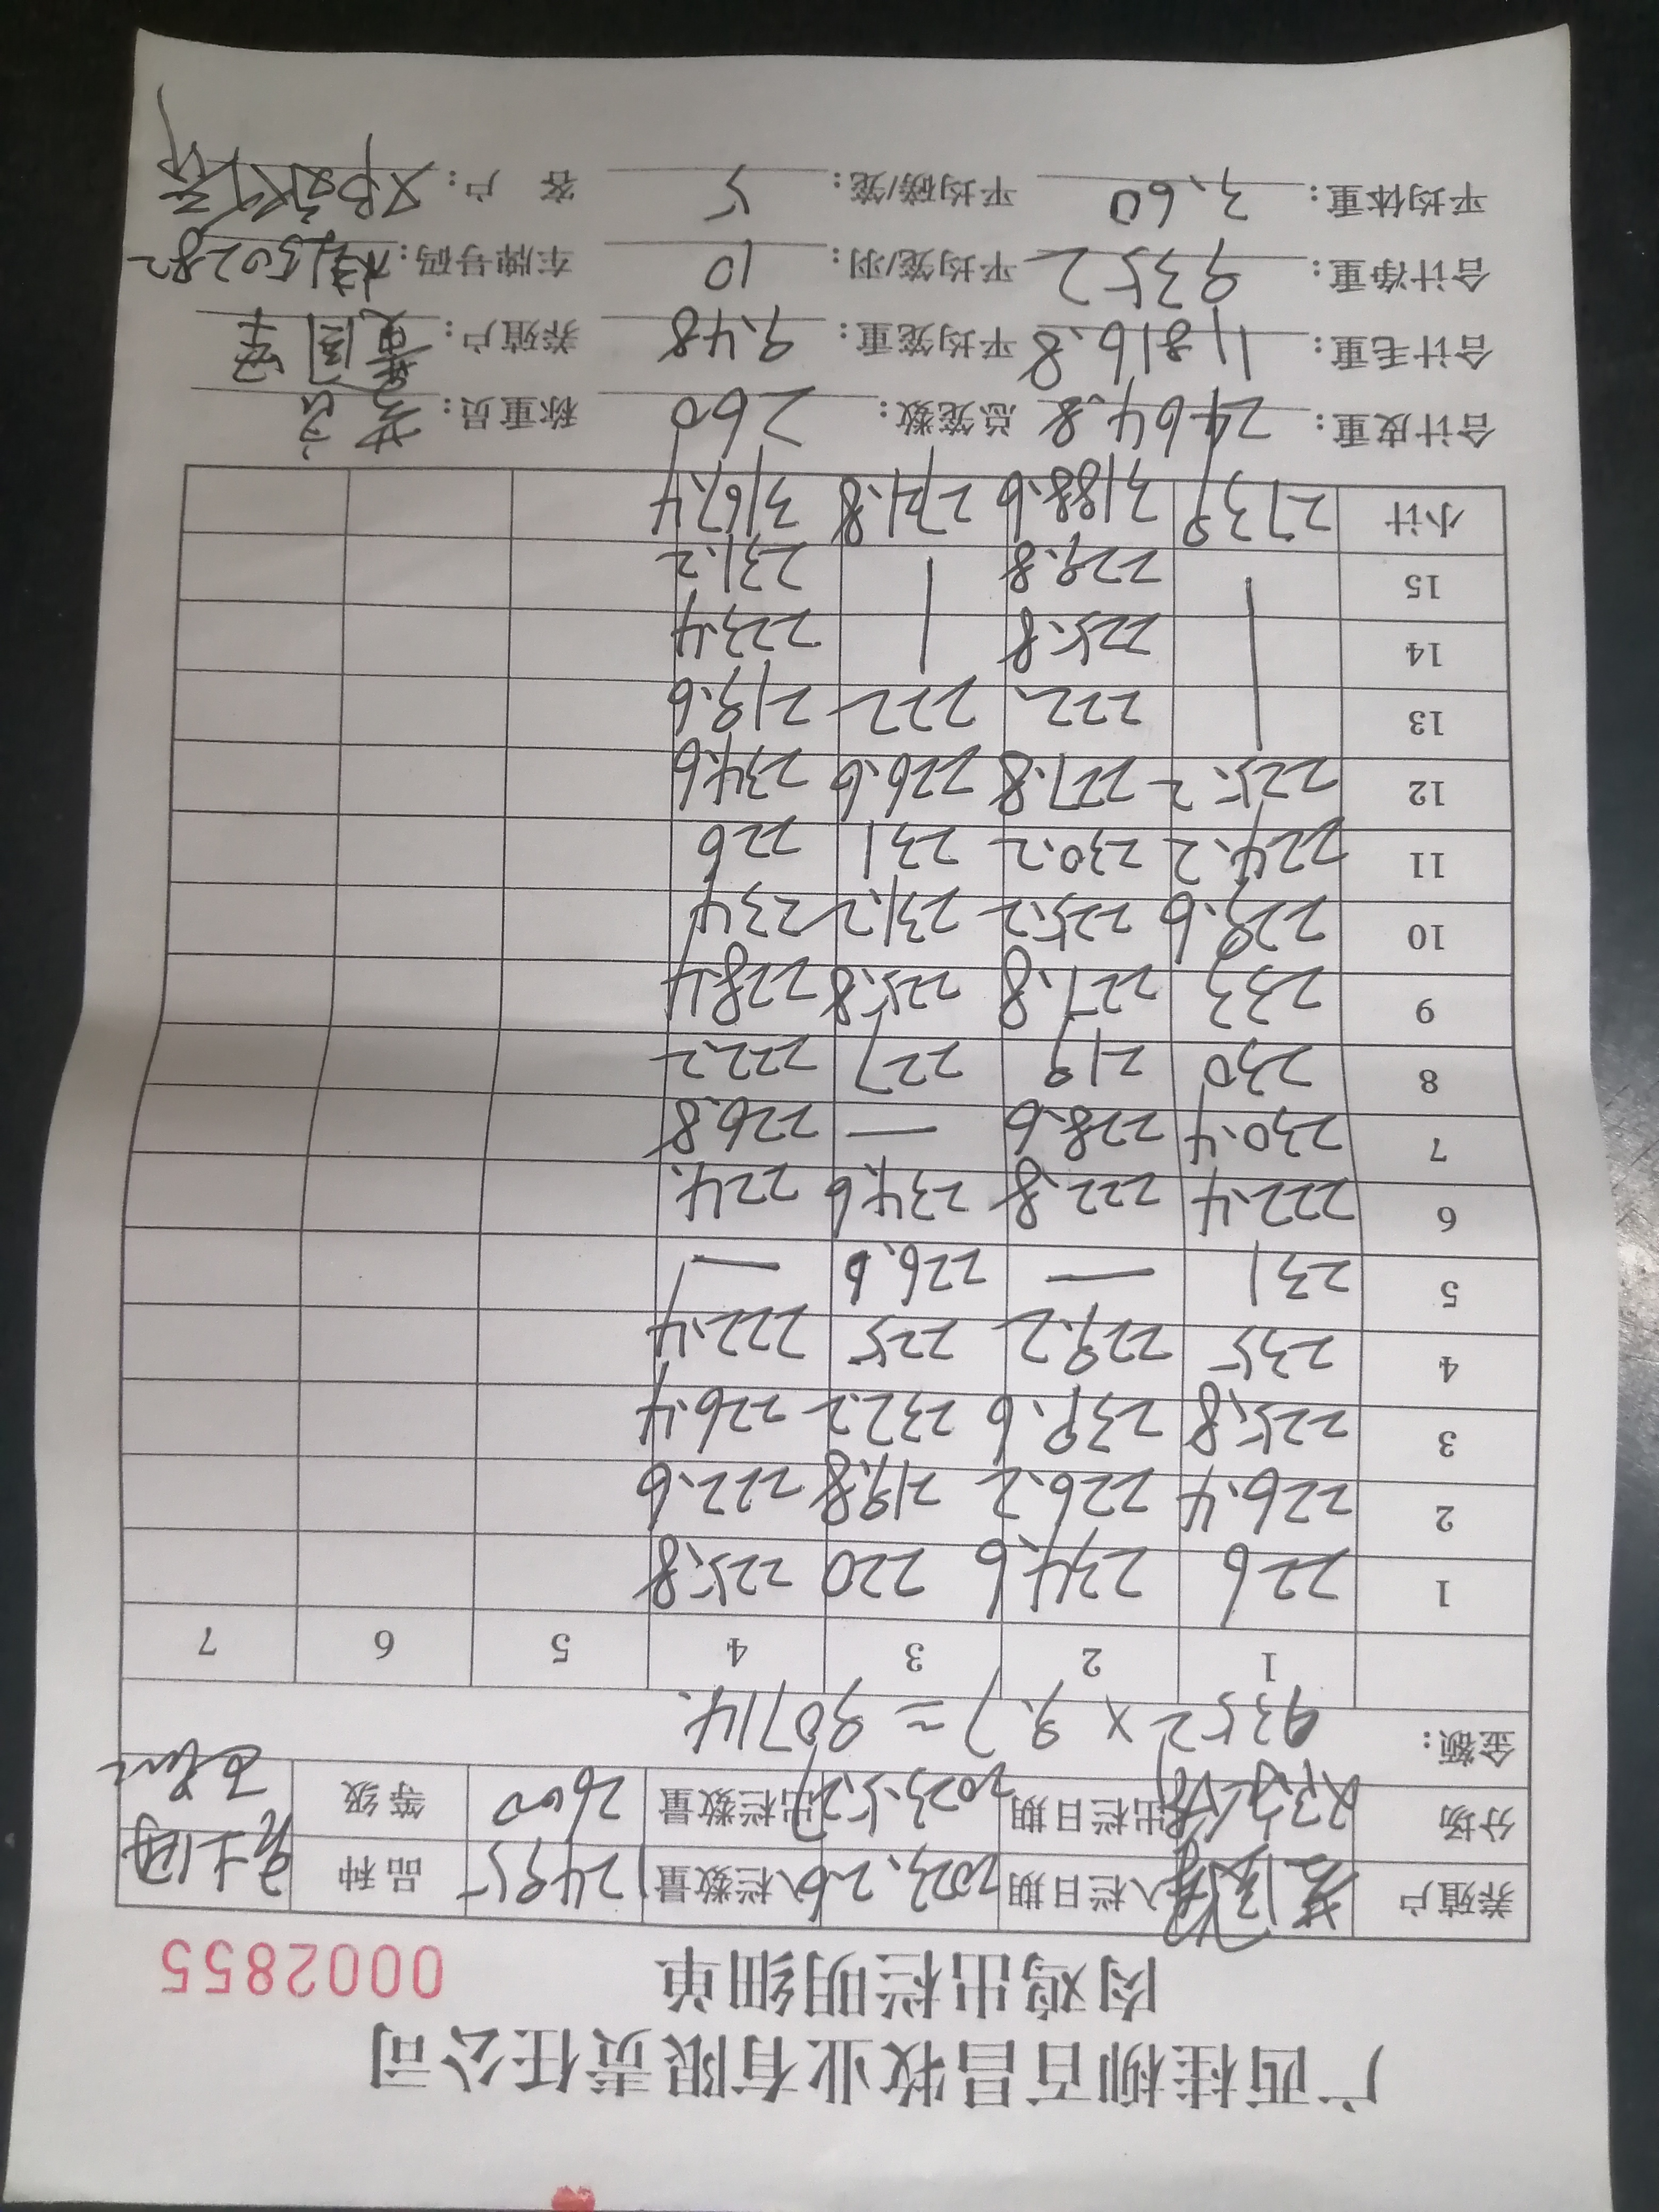 广西桂柳百昌牧业有限责任公司
肉鸡出栏明细单 0002855
养殖户 入栏日期 2023.2.6 入栏数量 12495 品种 土
分场 出栏日期 2023.5.2 出栏数量 2600 等级
金额: 9352 × 9.7 = 90714.
1 2 3 4 5 6 7
1 226 234.6 220 225.8
2 226.4 226.2 219.8 222.6
3 225.8 239.6 232.2 226.4
4 235 229.2 225 222.4
5 231 — 226.6 —
6 222.4 222.8 234.6 224.
7 230.4 228.6 — 226.8
8 230 219 227 222.2
9 233 227.8 225.8 228.4
10 229.6 225.2 231.2 234
11 224.2 230.2 231 226
12 225.2 227.8 226.6 234.6
13 222 222 219.6
14 225.8 223.4
15 229.8 231.2
小计 2739 3188.6 2721.8 3167.4
合计皮重: 2464.8 总笼数: 260 称重员:
合计毛重: 11816.8 平均笼重: 9.48 养殖户: 黄国
合计净重: 9352 平均笼/羽: 10 车牌号码: 桂J50282
平均体重: 3.60 平均磅/笼: 5 客 户: 邓